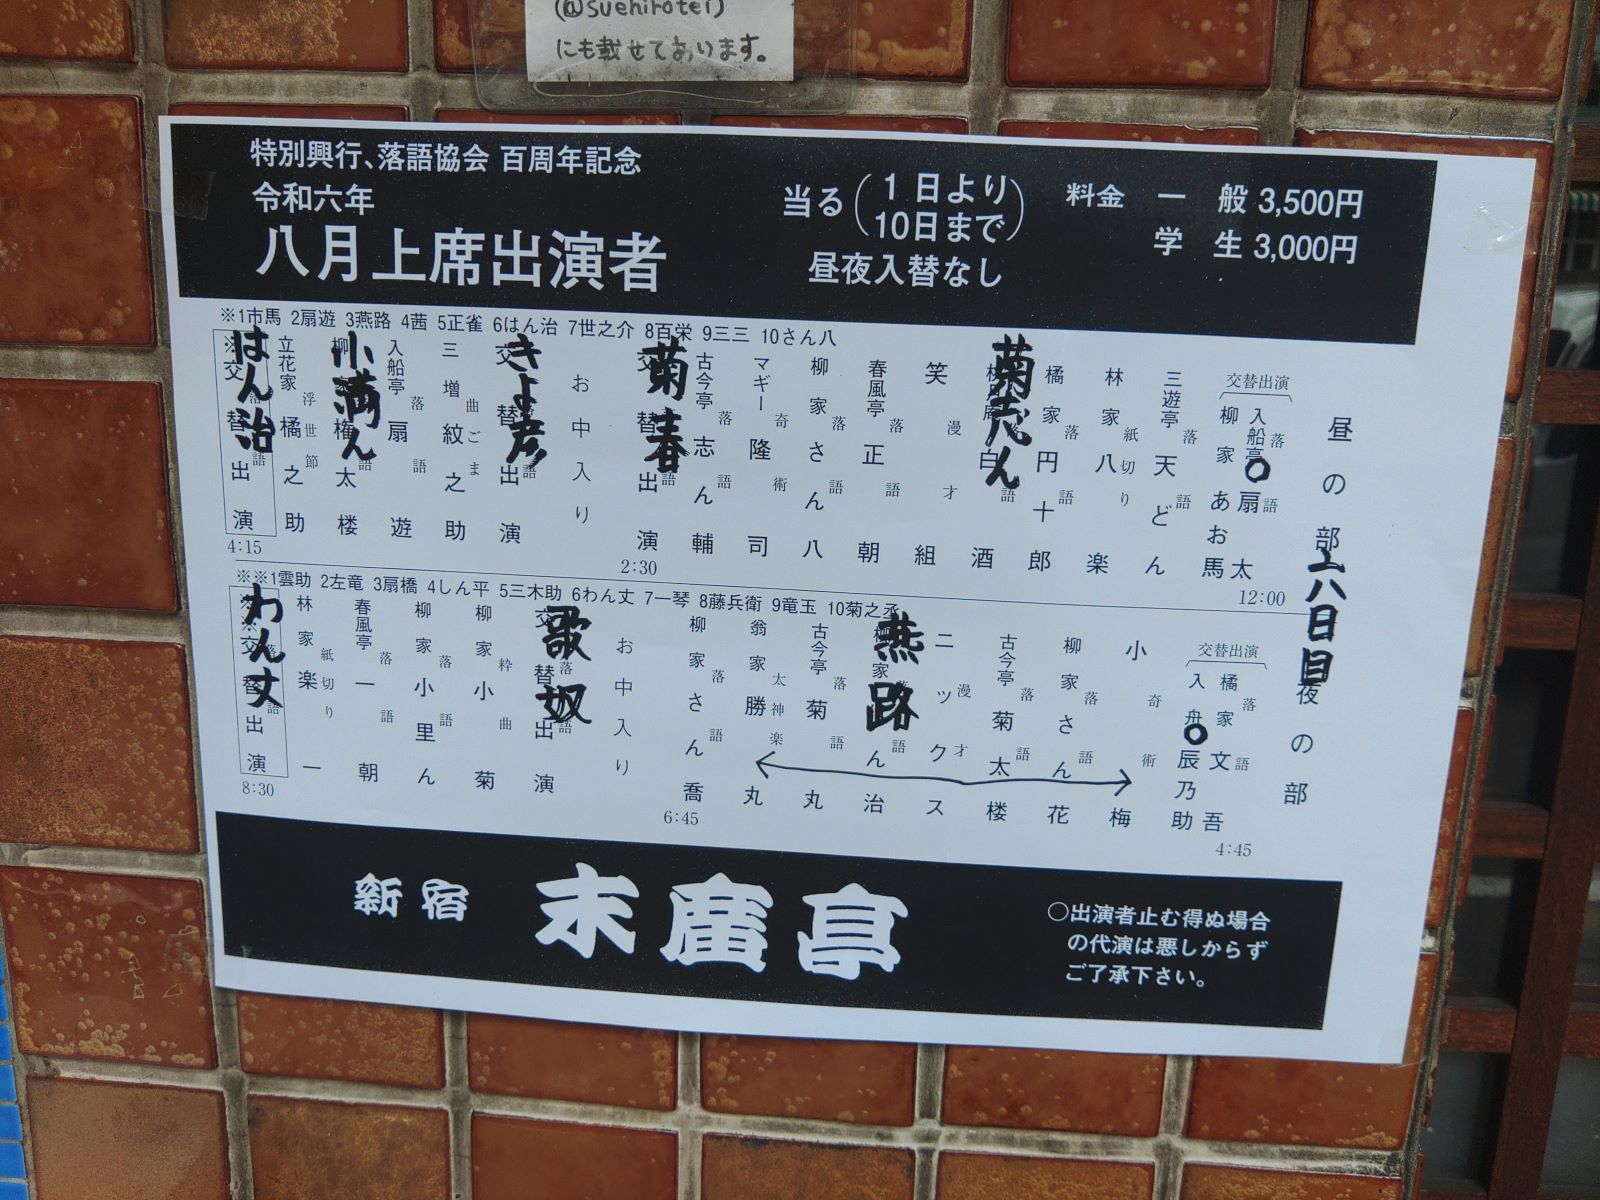 (@suehirotei)
にも載せてあります。
特別興行、落語協会 百周年記念
令和六年
八月上席出演者
当る(1日より
10日まで)
昼夜入替なし
料金 一 般 3,500円
学 生 3,000円
※1市馬 2扇遊 3燕路 4茜 5正雀 6はん治 7世之介 8百栄 9三三 10さん八
昼の部
12:00
交替出演
落語 入船亭扇太
柳家あお馬
落語 三遊亭天どん
紙切り 林家八楽
落語 橘家円十郎
菊志ん
漫才 笑組
落語 春風亭正朝
落語 柳家さん八
奇術 マギー隆司
落語 古今亭志ん輔
落語 交替出演
菊春
2:30
お中入り
落語 交替出演
きよ彦
曲ごま 三増紋之助
落語 入船亭扇遊
落語 柳家権太楼
小満ん
浮世節 立花家橘之助
落語 ※交替出演
はん治
4:15
八日目
※※1雲助 2左竜 3扇橋 4しん平 5三木助 6わん丈 7一琴 8藤兵衛 9竜玉 10菊之丞
夜の部
4:45
交替出演
落語 橘家文吾
入舟辰乃助
奇術 小梅
落語 柳家さん花
落語 古今亭菊太楼
漫才 ニックス
落語 柳家はん治
燕路
落語 古今亭菊丸
太神楽 翁家勝丸
落語 柳家さん喬
6:45
お中入り
落語 交替出演
歌奴
粋曲 柳家小菊
落語 柳家小里ん
落語 春風亭一朝
紙切り 林家楽一
落語 ※※交替出演
わん丈
8:30
新宿 末廣亭
○出演者止む得ぬ場合
の代演は悪しからず
ご了承下さい。